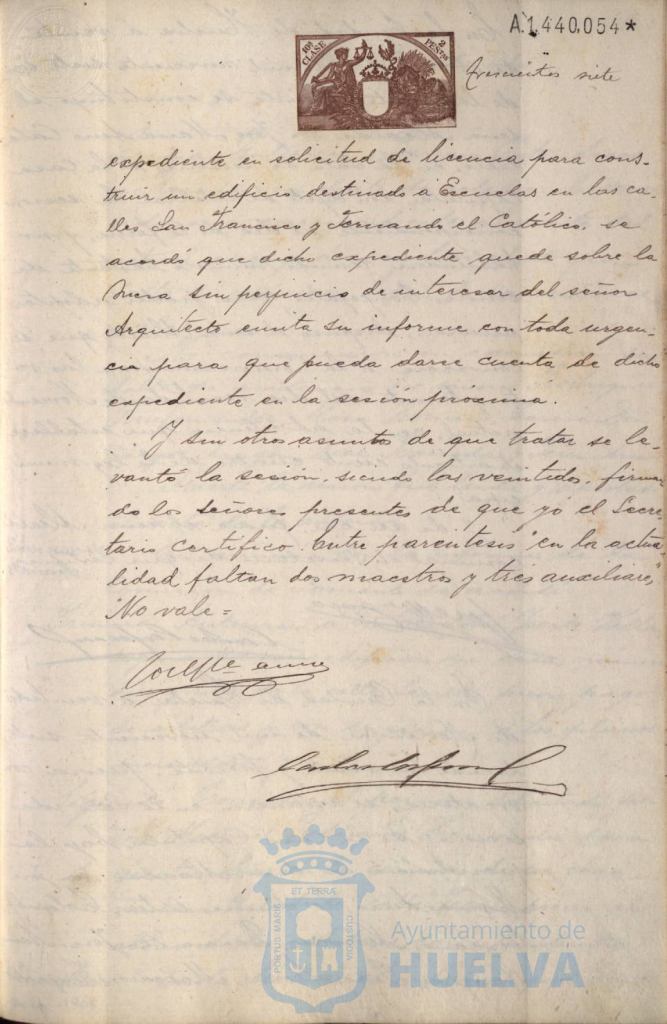 A.1.440,054*
10ª CLASE
2 PESETAS
trescientos siete
expediente en solicitud de licencia para cons-
truir un edificio destinado á Escuelas en las ca-
lles San Francisco y Fernando el Católico, se
acordó que dicho expediente quede sobre la
Mesa sin perjuicio de interesar del señor
Arquitecto emita su informe con toda urgen-
cia para que pueda darse cuenta de dicho
expediente en la sesión próxima.
Y sin otros asuntos de que tratar se le-
vantó la sesión, siendo las veintidos, firman-
do los señores presentes de que yó el Secre-
tario certifico. Entre paréntesis "en la actua-
lidad faltan dos maestros y tres auxiliares"
No vale=
ET TERRÆ
PORTUS MARIS
CUSTODIA
Ayuntamiento de
HUELVA